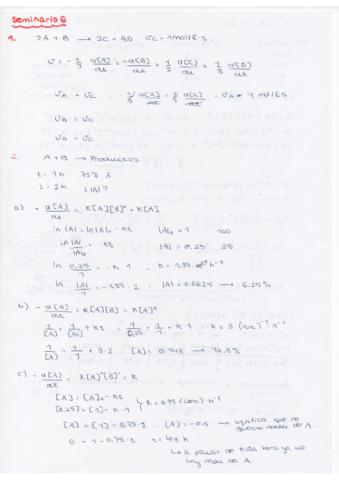 Seminario 6
1. 2A + B → 2C + 3D vc = 1 mol/l·s
v = - 1/2 d[A]/dt = - d[B]/dt = 1/2 d[C]/dt = 1/3 d[D]/dt
vA = vC
vB = vC
vD = vC
2. A + B → Productos
t = 1h 75% A.
t = 2h ¿A?
a) - d[A]/dt = K[A][B]° = K[A]
ln [A] = ln [A]₀ - Kt [A]₀ = 1 100
ln [A]/[A]₀ = - Kt [A] = 0,25 25
ln 0,25/1 = - K · 1
ln [A]/1 = - 1,39 · 2 [A] = 0,0625 → 6,25%
b) - d[A]/dt = K[A][B] = K[A]²
1/[A] = 1/[A]₀ + Kt 1/0,25 = 1/1 + K · 1 K = 3 (conc)⁻¹ h⁻¹
1/[A] = 1/1 + 3·2 [A] = 0,143 → 14,3%
c) - d[A]/dt = K[A]°[B]° = K
[A] = [A]₀ - Kt
[0,25] = [1] - K·1 K = 0,75 (conc) h⁻¹
[A] = [1] - 0,75·2 [A] = -0,5 → significa que no
queda nada de A.
0 = 1 - 0,75·t
→ a partir de esta hora ya no
hay más de A.